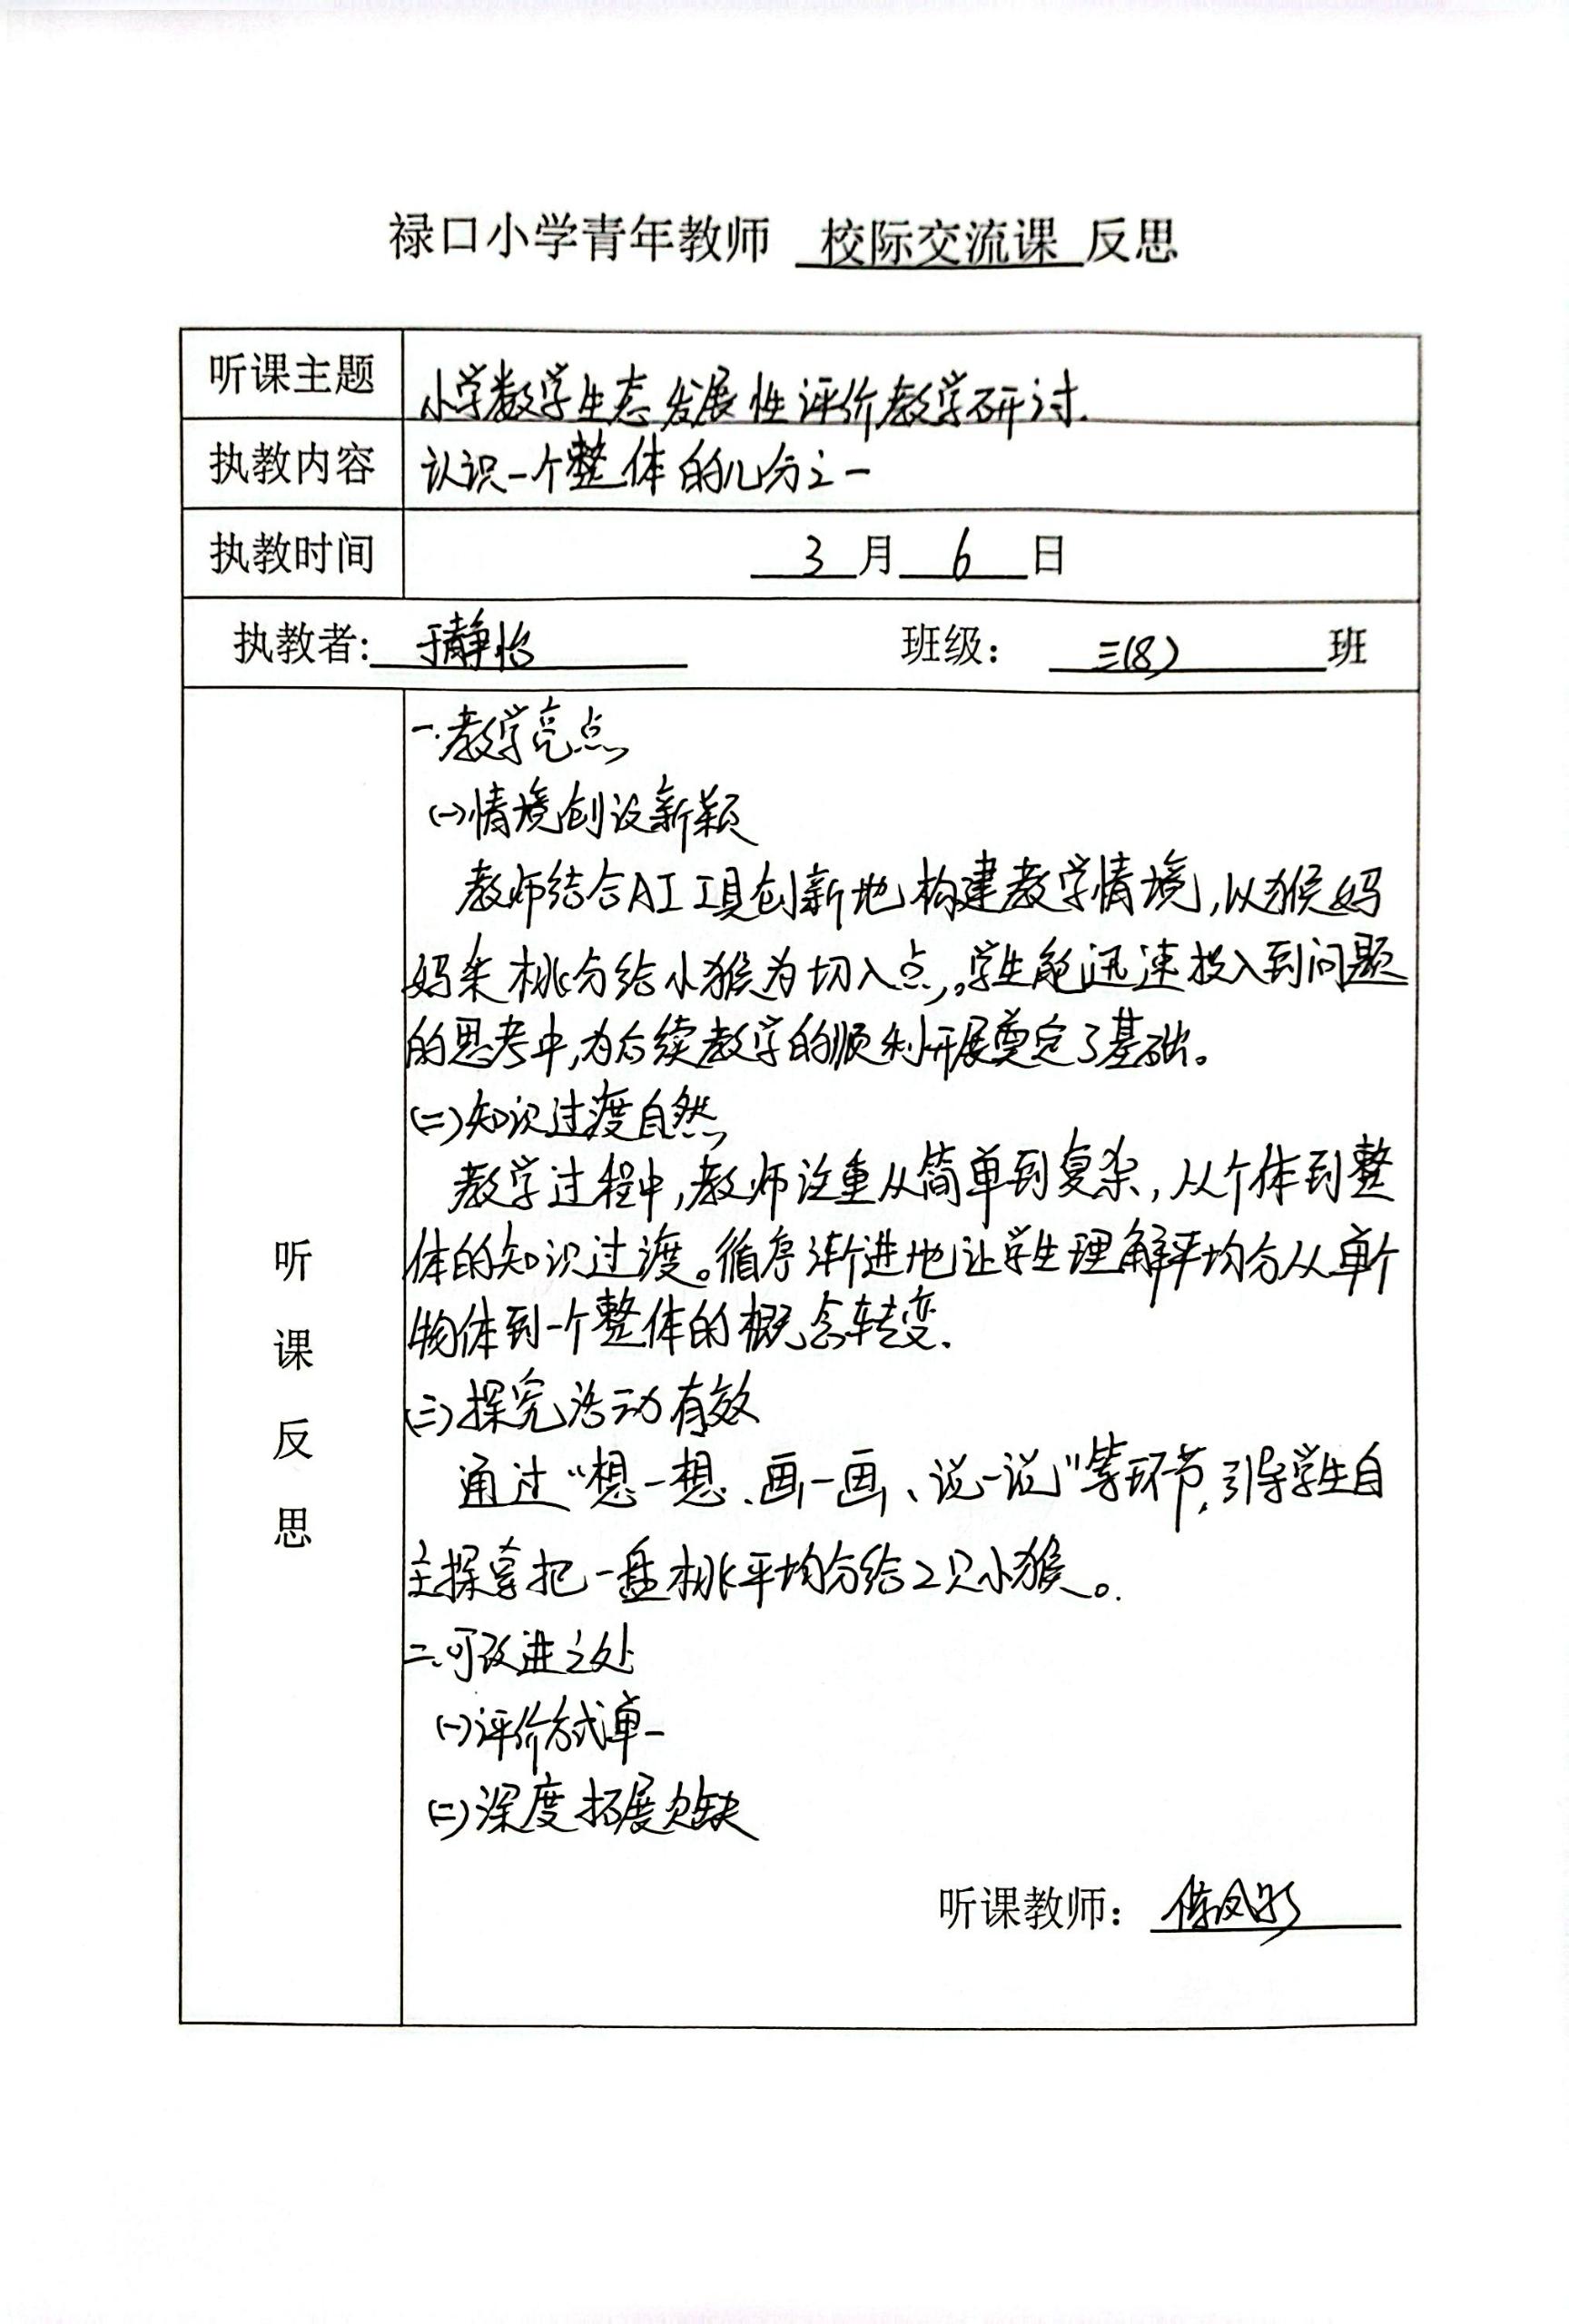 禄口小学青年教师 校际交流课 反思
听课主题 小学数学生态发展性评价教学研讨.
执教内容 认识一个整体的几分之一
执教时间 3 月 6 日
执教者: 于静怡 班级: 三(8) 班
听课反思
一.教学亮点
(一)情境创设新颖
教师结合AI工具创新地构建教学情境,以猴妈
妈来桃分给小猴为切入点,。学生能迅速投入到问题
的思考中,为后续教学的顺利开展奠定了基础。
(二)知识过渡自然
教学过程中,教师注重从简单到复杂,从个体到整
体的知识过渡。循序渐进地让学生理解平均分从单个
物体到一个整体的概念转变.
(三)探究活动有效
通过“想一想、画一画、说一说”等环节,引导学生自
主探拿把一盘桃平均分给2只小猴。.
二.可改进之处
(一)评价方式单一
(二)深度拓展欠缺
听课教师: